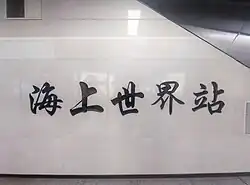 海上世界站